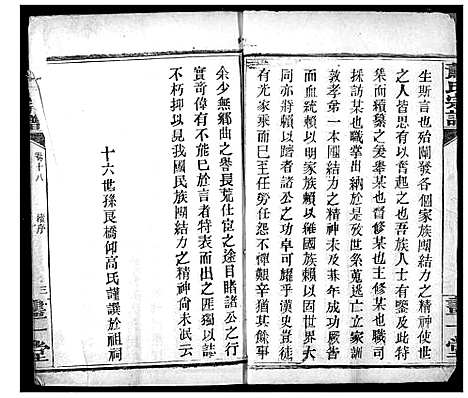 生斯言也殆闡發各個家族團結力之精神使世
之人皆思有以奮起之也吾族人士有鑒及此特
集而續纂之爰舉某也督修某也主修某也職司
採訪某也職掌出納於是旁搜世系蒐逸立家訓
敦孝弟一本團結力之精神未及朞年成功厥事
而血統賴以明家族賴以維國族賴以固世界大
同亦將賴以躋者諸公之功卓可耀乎漢史豈徒
有光家乘而已至任勞任怨不憚艱辛猶其餘事
余少無鄉曲之譽長荒仕宦之途目睹諸公之行
實奇偉有不能已於言者特表而出之匪獨以誌
不朽抑以見我國民族團結力之精神尚未泯云
十六世孫艮橋仰高氏謹譔於祖祠
氏宗譜
卷十八
續序
三
畫一堂